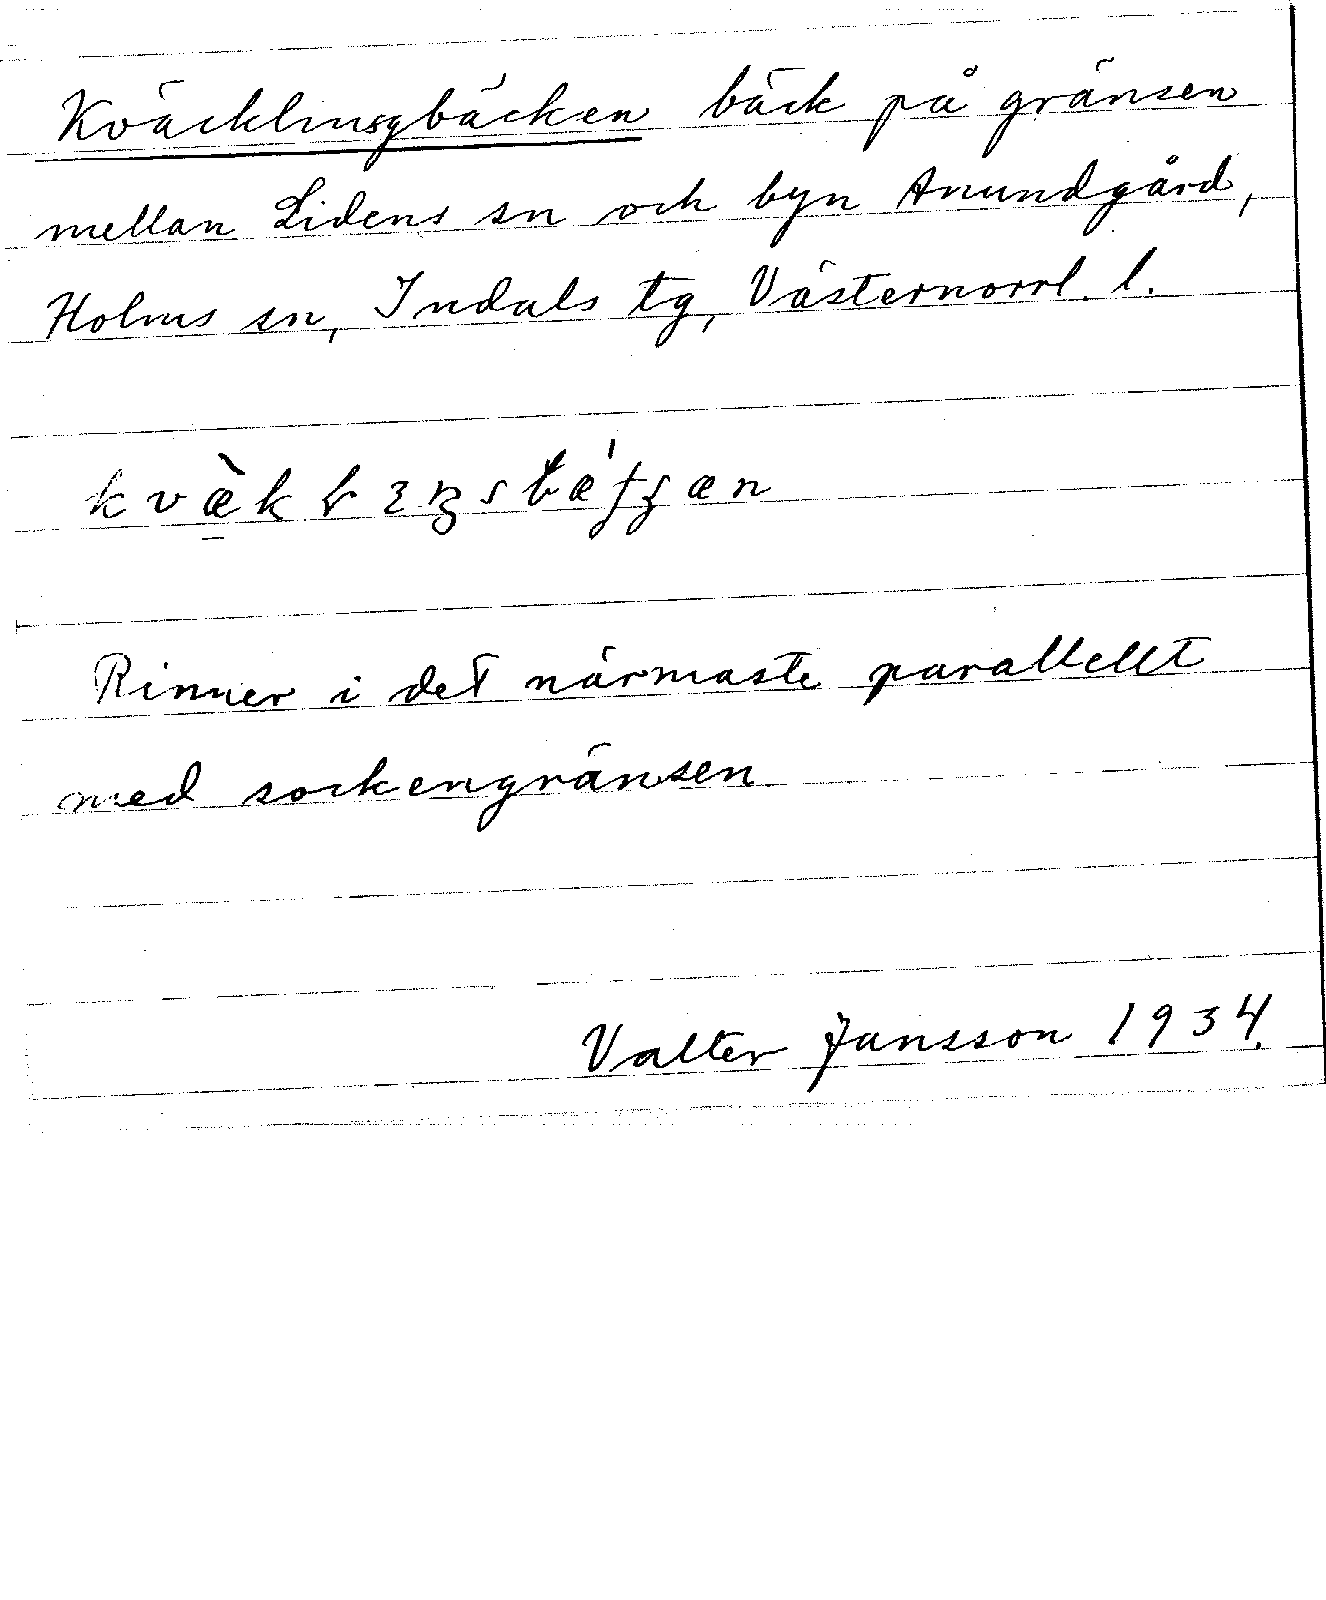 Kväcklingbäcken bäck på gränsen
mellan Lidens sn och byn Anundgård,
Holms sn, Indals tg, Västernorrl. l.
Rinner i det närmaste parallellt
med sockengränsen
Valter Jansson 1934.